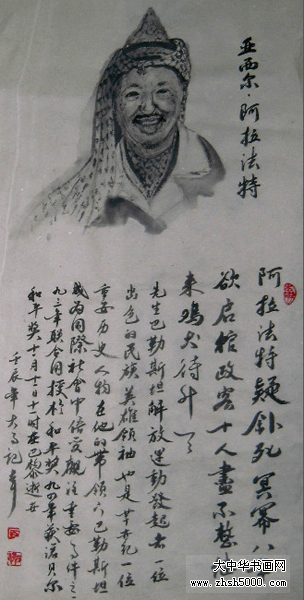 亚西尔·阿拉法特
阿拉法特疑钋死冥
欲启棺政客十人尽不
来鸡犬待升
先生巴勒斯坦解放运动发起者一位
出色的民族英雄领袖也是廿世纪一位
重要历史人物在他的带领下巴勒斯坦
成为国际社会中倍受关注重要事件之
九三年联合国授于和平奖九四年获诺贝尔
和平奖十一月十一日十时在巴黎逝世
壬辰年
大中华书画网
www.zhsh5000.com